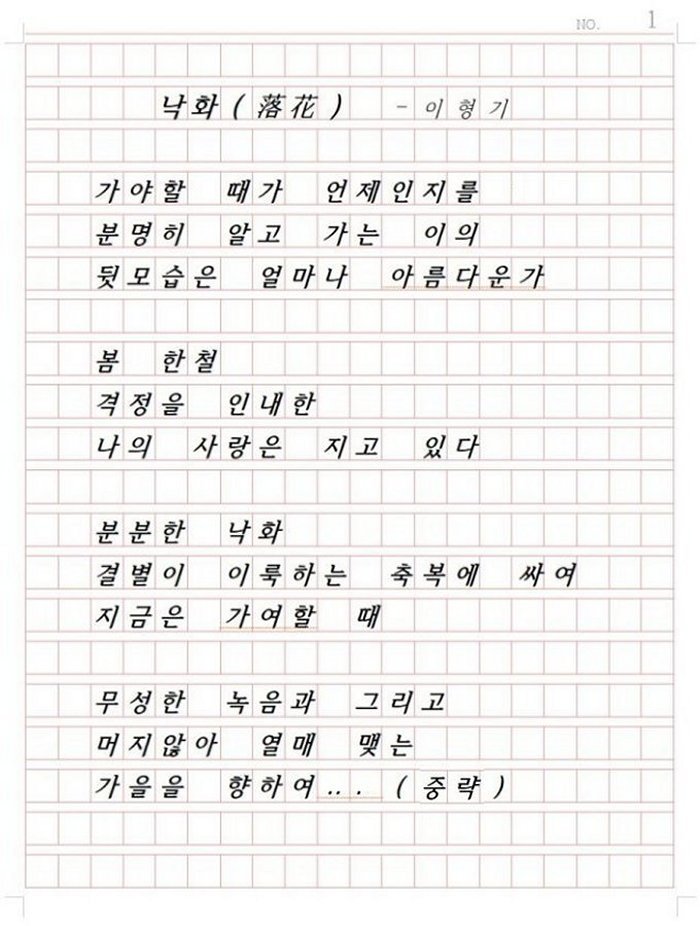 NO. 1
낙화(落花) - 이형기
가야할 때가 언제인지를
분명히 알고 가는 이의
뒷모습은 얼마나 아름다운가
봄 한철
격정을 인내한
나의 사랑은 지고 있다
분분한 낙화
결별이 이룩하는 축복에 싸여
지금은 가여할 때
무성한 녹음과 그리고
머지않아 열매 맺는
가을을 향하여... (중략)